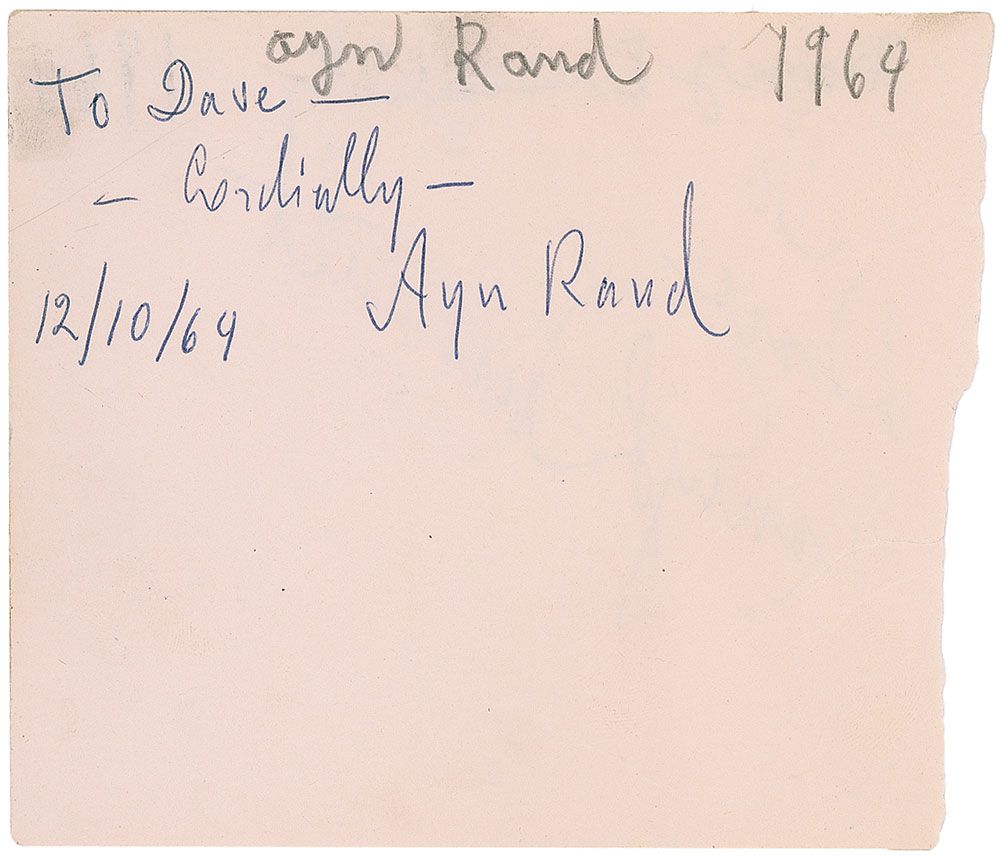 ayn Rand 1964
To Dave —
— Cordially —
Ayn Rand
12/10/64